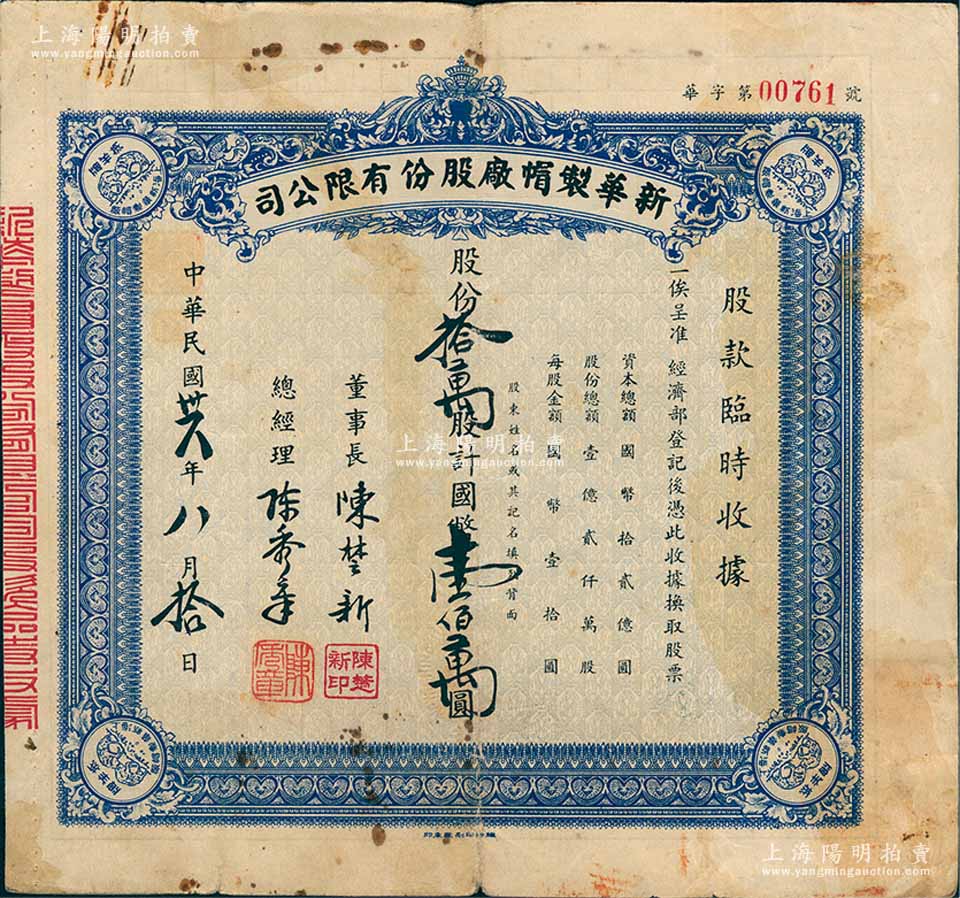 上海陽明拍賣
www.yangmingauction.com
華字第00761號
新華製帽廠股份有限公司
股款臨時收據
一俟呈准 經濟部登記後憑此收據換取股票
資本總額國幣拾貳億圓
股份總額壹億貳仟萬股
每股金額國幣壹拾圓
股東姓名或其記名填列背面
股份拾萬股計國幣壹佰萬圓
董事長 陳楚新
陳楚新印
總經理 陈秀
中華民國卅六年八月拾日
上海陽明拍賣
www.yangmingauction.com
上海陽明拍賣
www.yangmingauction.com